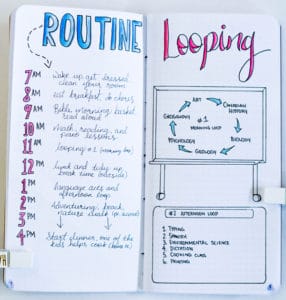 ROUTINE
7 AM wake up, get dressed
clean your room
8 AM eat breakfast, do chores
9 AM Bible, morning basket
read aloud
10 AM Math, reading, and
piano lessons
11 AM looping #1 (morning loop)
12 PM lunch and tidy up
book time (outside)
1 PM language arts and
afternoon loop
2 PM Adventuring, beach,
nature walk
3 PM
4 PM Start dinner, one of the
kids helps cook
Looping
ART
CANADIAN HISTORY
BIOLOGY
GEOLOGY
PSYCHOLOGY
GEOGRAPHY
#1
MORNING LOOP
#2 AFTERNOON LOOP
1. TYPING
2. SPANISH
3. ENVIRONMENTAL SCIENCE
4. DICTATION
5. COOKING CLASS
6. PRINTING